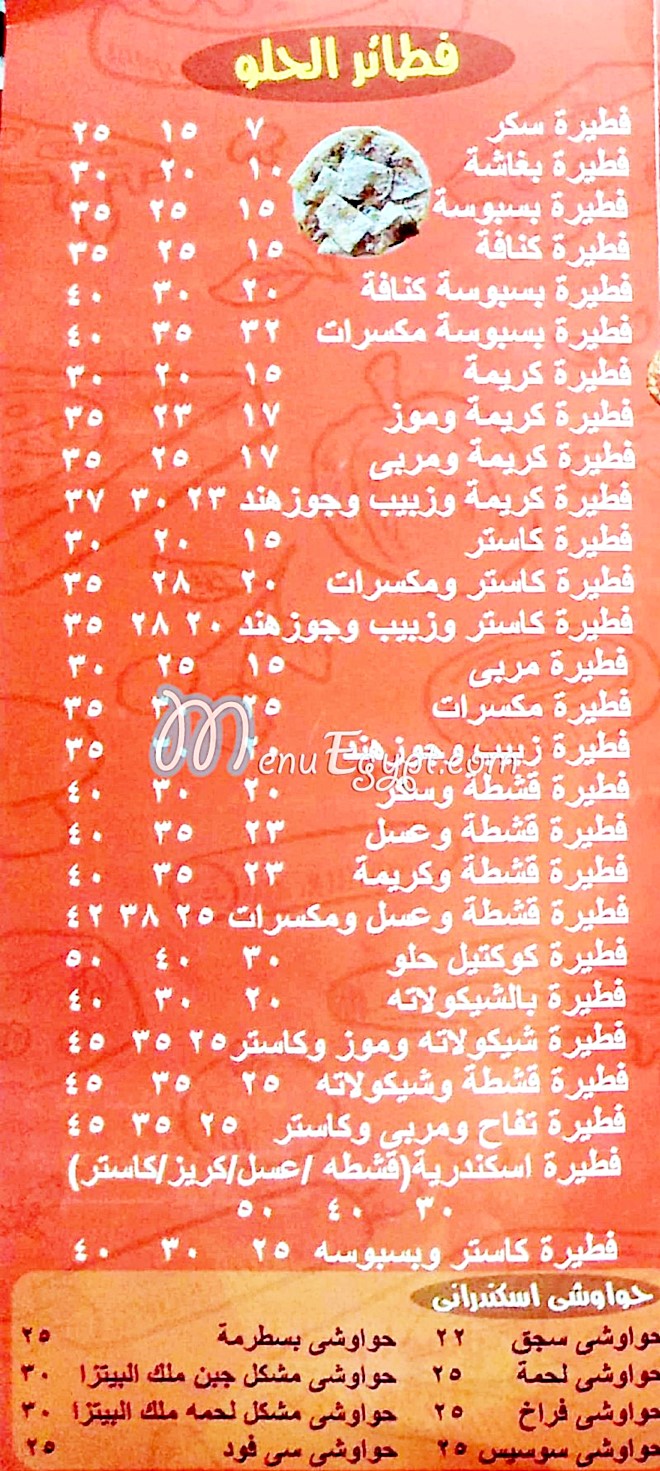 فطائر الحلو
فطيرة سكر ٧ ١٥ ٢٥
فطيرة بغاشة ١٠ ٢٠ ٣٠
فطيرة بسبوسة ١٥ ٢٥ ٣٥
فطيرة كنافة ١٥ ٢٥ ٣٥
فطيرة بسبوسة كنافة ٢٠ ٣٠ ٤٠
فطيرة بسبوسة مكسرات ٣٢ ٣٥ ٤٠
فطيرة كريمة ١٥ ٢٠ ٣٠
فطيرة كريمة وموز ١٧ ٢٣ ٣٥
فطيرة كريمة ومربى ١٧ ٢٥ ٣٥
فطيرة كريمة وزبيب وجوزهند ٢٣ ٣٠ ٣٧
فطيرة كاستر ١٥ ٢٠ ٣٠
فطيرة كاستر ومكسرات ٢٠ ٢٨ ٣٥
فطيرة كاستر وزبيب وجوزهند ٢٠ ٢٨ ٣٥
فطيرة مربى ١٥ ٢٥ ٣٠
فطيرة مكسرات ٢٥ ٣٥
فطيرة زبيب وجوزهند ٢٠ ٣٥
MenuEgypt.com
فطيرة قشطة وسكر ٢٠ ٣٠ ٤٠
فطيرة قشطة وعسل ٢٣ ٣٥ ٤٠
فطيرة قشطة وكريمة ٢٣ ٣٥ ٤٠
فطيرة قشطة وعسل ومكسرات ٢٥ ٣٨ ٤٢
فطيرة كوكتيل حلو ٣٠ ٤٠ ٥٠
فطيرة بالشيكولاته ٢٠ ٣٠ ٤٠
فطيرة شيكولاته وموز وكاستر ٢٥ ٣٥ ٤٥
فطيرة قشطة وشيكولاته ٢٥ ٣٥ ٤٥
فطيرة تفاح ومربى وكاستر ٢٥ ٣٥ ٤٥
فطيرة اسكندرية(قشطه /عسل/كريز/كاستر)
٣٠ ٤٠ ٥٠
فطيرة كاستر وبسبوسه ٢٥ ٣٠ ٤٠
حواوشى اسكندرانى
حواوشى سجق ٢٢ حواوشى بسطرمة ٢٥
حواوشى لحمة ٢٥ حواوشى مشكل جبن ملك البيتزا ٣٠
حواوشى فراخ ٢٥ حواوشى مشكل لحمه ملك البيتزا ٣٠
حواوشى سوسيس ٢٥ حواوشى سى فود ٢٥